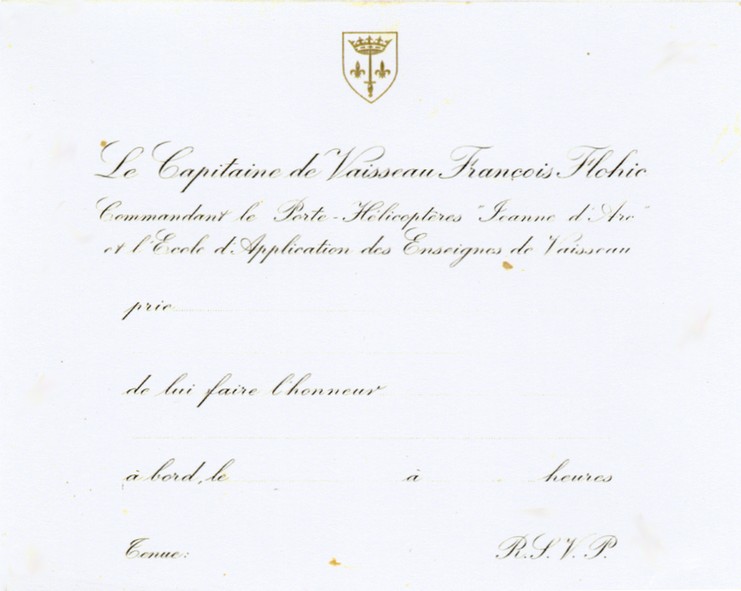 Le Capitaine de Vaisseau François Flohic
Commandant le Porte-Hélicoptères "Jeanne d'Arc"
et l'Ecole d'Application des Enseignes de Vaisseau
prie
de lui faire l'honneur
à bord, le à heures
Tenue: R.S.V.P.